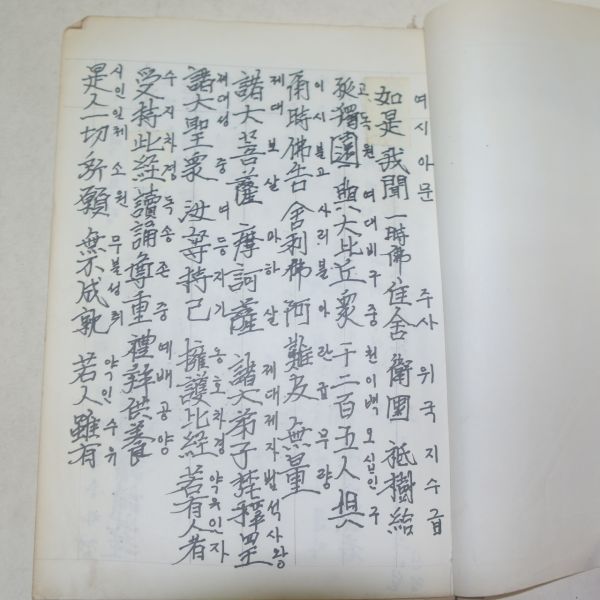 여시아문 주사위국지수급
如是我聞 一時佛住舍衛國 祗樹給
고독원 여대비구중 천이백오십인구
孤獨園 與大比丘衆 千二百五人俱
이시불고 사리불아란급 무량
爾時佛告 舍利佛阿難及 無量
제대보살 마하살 제대제자범석사왕
諸大菩薩 摩訶薩 諸大弟子梵釋四王
제대성중 여등자기 옹호차경 약유인자
諸大聖衆 汝等持己 擁護比經 若有人者
수지차경독송존중예배공양
受持此經讀誦尊重禮拜供養
시인일체 소원 무불성취 약인수유
是人一切 所願 無不成就 若人雖有